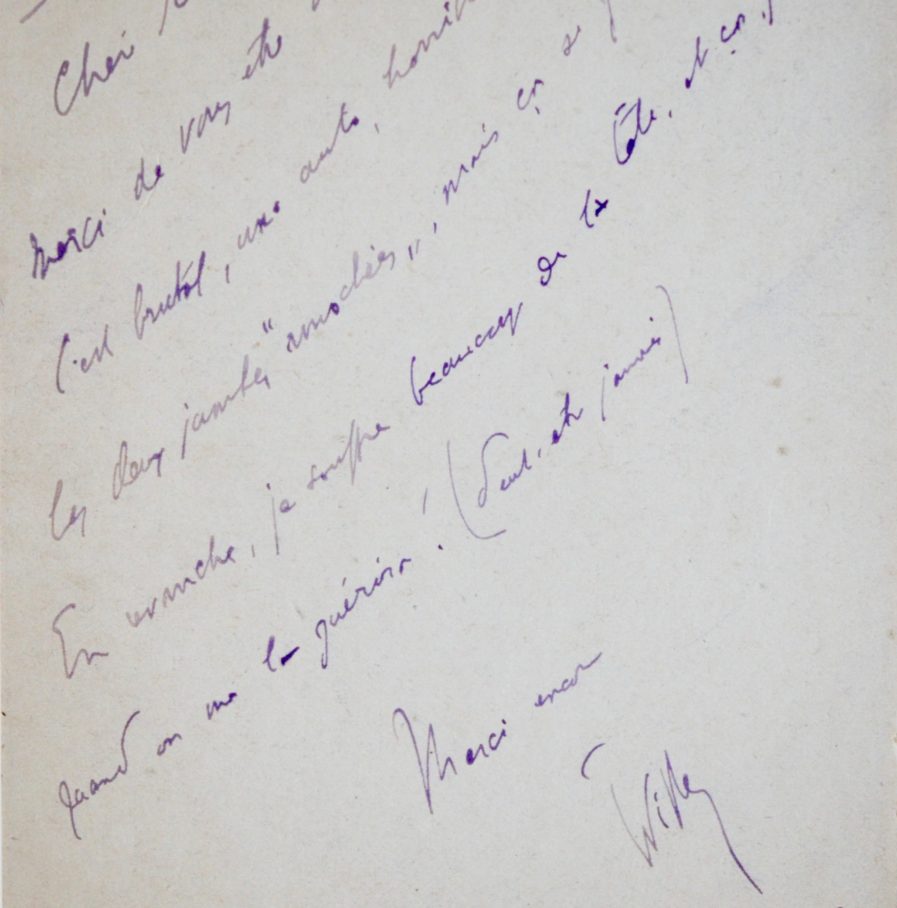 Cher
Merci de vous être
C'est brutal, une auto,
Les deux jambes "amochées", mais ça
En revanche, je souffre beaucoup de la tête, et ça,
quand on me la guérira ! (Peut-être jamais)
Merci encore
Willy